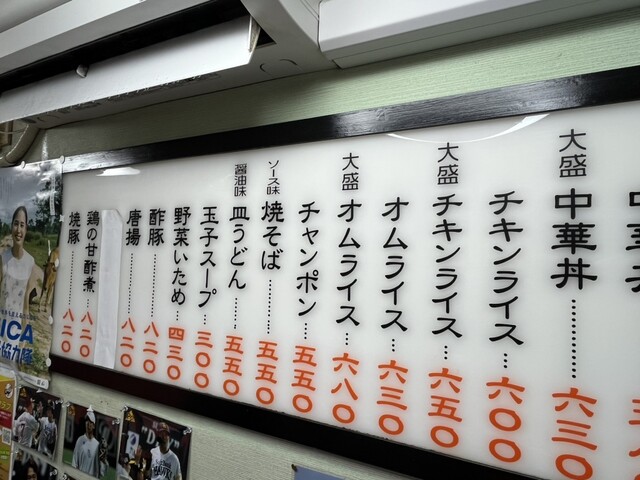 大盛 中華丼……六三〇
チキンライス…六〇〇
大盛 チキンライス…六五〇
オムライス…六三〇
大盛 オムライス…六八〇
チャンポン…五五〇
ソース味 焼そば……五五〇
醤油味 皿うどん……五五〇
玉子スープ……三〇〇
野菜いため…四三〇
酢豚……八二〇
唐揚……八二〇
鶏の甘酢煮…八二〇
焼豚……八二〇
ICA
協力隊